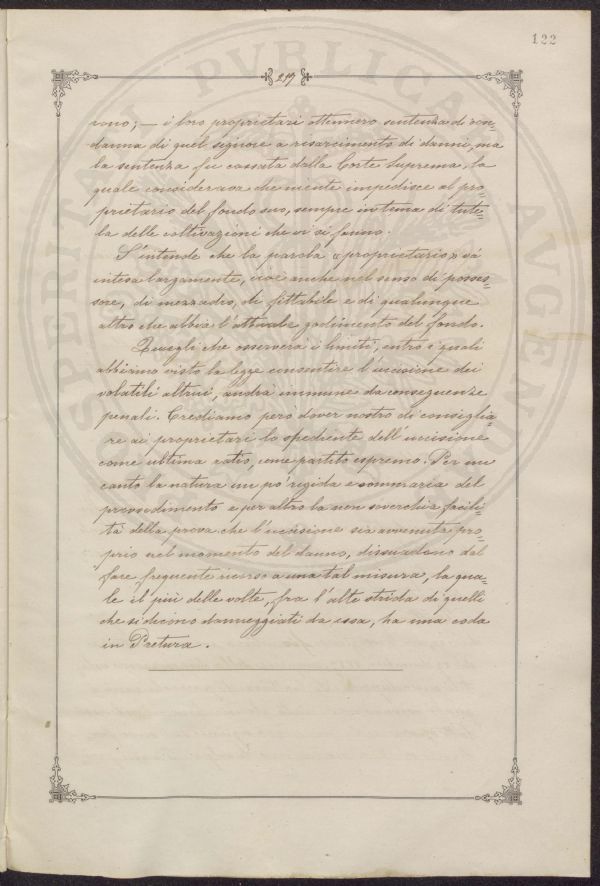 122
219
rono; — i loro proprietari ottennero sentenza di con=
danna di quel signore a risarcimento di danni, ma
la sentenza fu cassata dalla Corte Suprema, la
quale considerava che niente impedisce al pro=
prietario del fondo suo, sempre in tema di tute=
la delle coltivazioni che vi si fanno.
S'intende che la parola «proprietario» va
intesa largamente, cioè anche nel senso di posses=
sore, di mezzadro, di fittabile e di qualunque
altro che abbia l'attuale godimento del fondo.
Quegli che osserverà i limiti, entro i quali
abbiamo visto la legge consentire l'uccisione dei
volatili altrui, andrà immune da conseguenze
penali. Crediamo però dover nostro di consiglia=
re ai proprietari lo spediente dell'uccisione
come ultima ratio, come partito estremo. Per un
canto la natura un po' rigida e sommaria del
provvedimento e per altro la non soverchia facili=
tà della prova che l'uccisione sia avvenuta pro=
prio nel momento del danno, dissuadono dal
fare frequente ricorso a una tal misura, la qua=
le il più delle volte, fra l'alte strida di quelli
che si dicono danneggiati da essa, ha una coda
in Pretura.
PROSPERITATI PVBLICAE AVGENDAE